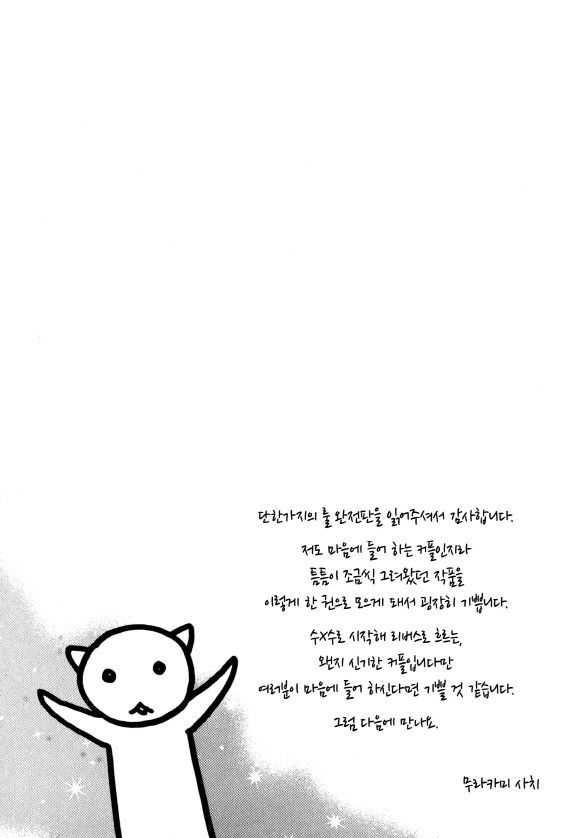 단한가지의 룰 완전판을 읽어주셔서 감사합니다.
저도 마음에 들어 하는 커플인지라
틈틈이 조금씩 그려왔던 작품을
이렇게 한 권으로 모으게 돼서 굉장히 기쁩니다.
수X수로 시작해 리버스로 흐르는,
왠지 신기한 커플입니다만
여러분이 마음에 들어 하신다면 기쁠 것 같습니다.
그럼 다음에 만나요.
무라카미 사치